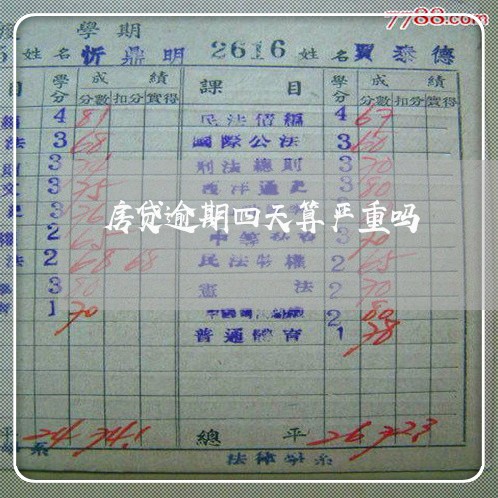 7788.com
學期
姓名 忻鼎明 2616 姓名 賈泰德
目 學分 成績 課目 學分 成績
分數 扣分 實得 分數 扣分 實得
4 81 民法債編 4 67
法 3 68 國際公法 3 60
3 刑法總則 3 70
3 75 西洋通史 3 80
房贷逾期四天算严重吗
2 65 3 70
法 2 68 68 民法物權 2 65
3 80 憲法 2 70
1 70 2 80
普通體育 1 78
平 24 74.1 總平 26 72.3
系 法律學系